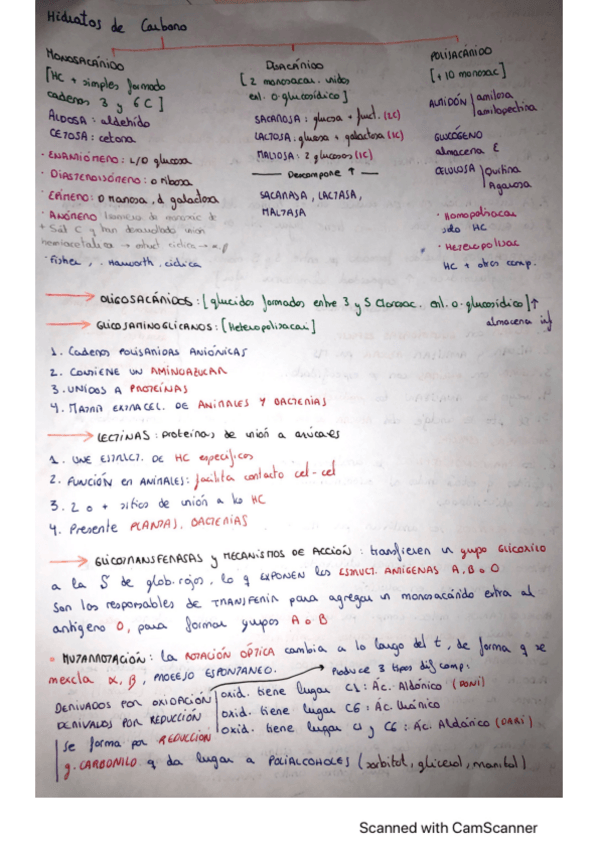 Hidratos de Carbono
MONOSACÁRIDO
[HC + simples formado
cadenas 3 y 6 C]
ALDOSA: aldehido
CETOSA: cetona
· ENANTIÓMERO: L/D glucosa
· DIASTEROISÓMERO: D ribosa
· EPÍMERO: D manosa, d galactosa
· ANÓMERO isomeros de monosac de
+ 5 át C y han desarrollado unión
hemiacetalica → estruct ciclica → α, β
· Fisher, Haworth, ciclica
DISACÁRIDO
[2 monosacar. unidos
enl. O-glucosídico]
SACAROSA: glucosa + fruct. (2C)
LACTOSA: glucosa + galactosa (1C)
MALTOSA: 2 glucosas (1C)
Descompone ↑
SACARASA, LACTASA,
MALTASA
POLISACÁRIDO
[+10 monosac]
ALMIDÓN amilosa
amilopectina
GLUCÓGENO
almacena E
CELULOSA Quitina
Agarosa
· Homopolisacar
solo HC
· Heteropolisac
HC + otros comp.
→ OLIGOSACÁRIDOS: [glucidos formados entre 3 y 5 monosac. enl. O-glucosídico] ↑
almacena inf
→ GLICOSAMINOGLICANOS: [Heteropolisacar]
1. Cadenas POLISARIDAS ANIÓNICAS
2. CONTIENE UN AMINOAZUCAR
3. UNIDOS A PROTEÍNAS
4. MATRIZ EXTRACEL. DE ANIMALES Y BACTERIAS
→ LECTINAS: proteínas de unión a azúcares
1. UNE ESTRUCT. DE HC específicos
2. FUNCIÓN EN ANIMALES: facilita contacto cel-cel
3. 2 o + sitios de unión a los HC
4. Presente PLANTAS, BACTERIAS
→ GLICOTRANSFERASAS y MECANISMOS DE ACCIÓN: transfieren un grupo GLICOXILO
a la S de glob. rojos, lo q EXPONEN los ESTRUCT. ANTÍGENAS A, B o O
Son los responsables de TRANSFERIR para agregar un monosacárido extra al
antígeno O, para formar grupos A o B
· MUTARROTACIÓN: la ROTACIÓN ÓPTICA cambia a lo largo del t, de forma q se
mezcla α, β, PROCESO ESPONTANEO.
Produce 3 tipos dif comp:
DERIVADOS POR OXIDACIÓN oxid. tiene lugar C1: Ác. Aldónico (DONI)
oxid. tiene lugar C6: Ác. Urónico
oxid. tiene lugar C1 y C6: Ác. Aldárico (DARI)
DERIVADOS POR REDUCCIÓN
se forma por REDUCCIÓN
g. CARBONILO q da lugar a POLIALCOHOLES (sorbitol, glicerol, manitol)
Scanned with CamScanner